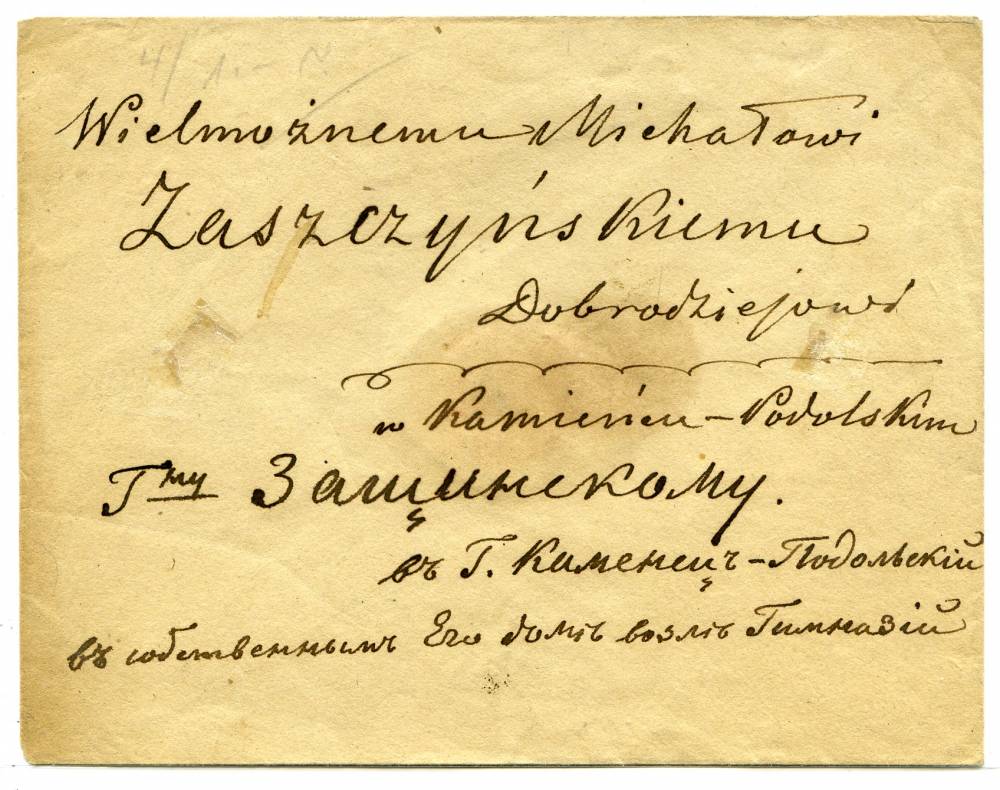 4/ 1.–
Wielmożnemu Michałowi
Zaszczyńskiemu
Dobrodziejowi
w Kamieńcu-Podolskim
Гну Защинскому.
въ Г. Каменецъ-Подольскій
въ собственнымъ Его домѣ возлѣ Гимназій